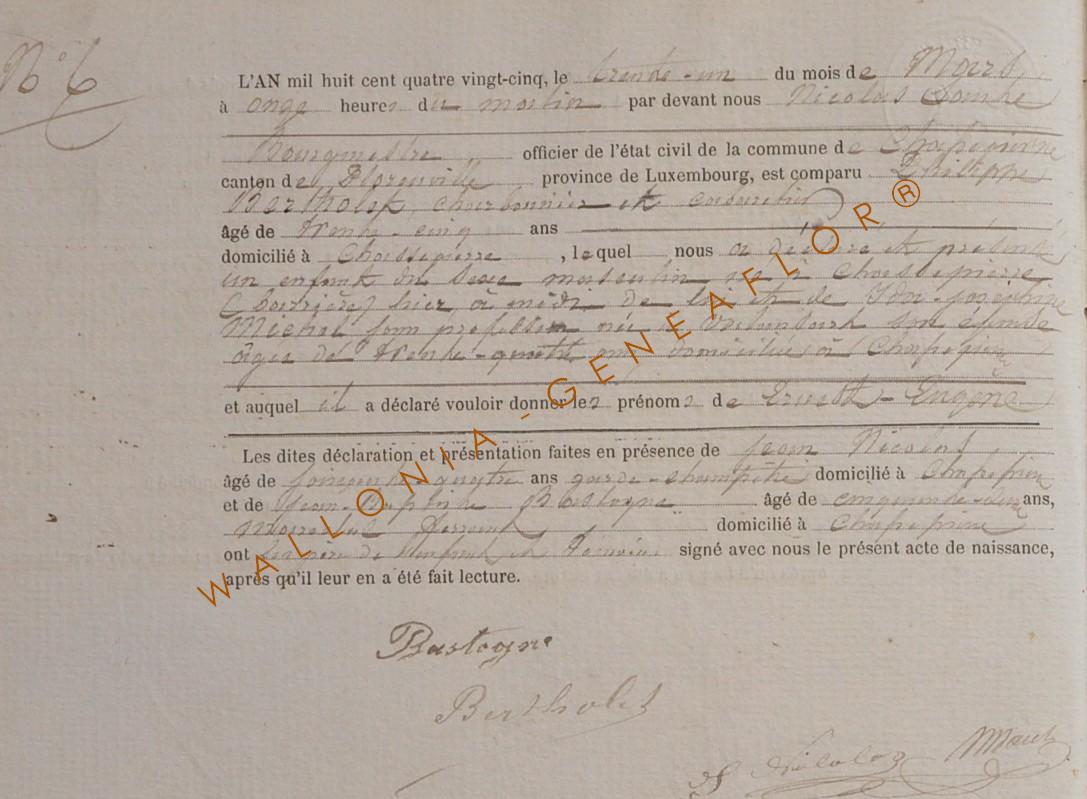 N° 6
L'AN mil huit cent quatre vingt-cinq, le trente-un du mois de Mars,
à onze heures du matin par devant nous Nicolas
Bourgmestre officier de l'état civil de la commune de Chassepierre
canton de Florenville province de Luxembourg, est comparu Philippe
Bertholet, charbonnier et cabaretier
âgé de trente-cinq ans
domicilié à Chassepierre, lequel nous a déclaré et présenté
un enfant du sexe masculin né à Chassepierre
hier à midi de lui et de Ida-Joséphine
Michel sans profession née à son épouse
âgée de trente-quatre ans domiciliée à Chassepierre
et auquel il a déclaré vouloir donner les prénoms de Ernest-Eugène
Les dites déclaration et présentation faites en présence de Jean Nicolas
âgé de quatre ans garde-champêtre domicilié à Chassepierre
et de Jean-Baptiste Bastogne âgé de cinquante-deux ans,
Maréchal ferrant domicilié à Chassepierre
ont le père de l'enfant et témoins signé avec nous le présent acte de naissance,
après qu'il leur en a été fait lecture.
WALLONIA-GENEAFLOR®
Bastogne
Bertholet